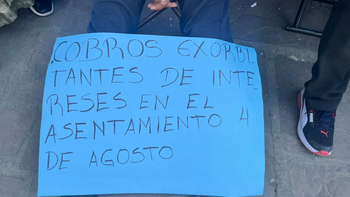 COBROS EXORBI
TANTES DE INTE
RESES EN EL
ASENTAMIENTO 4
DE AGOSTO